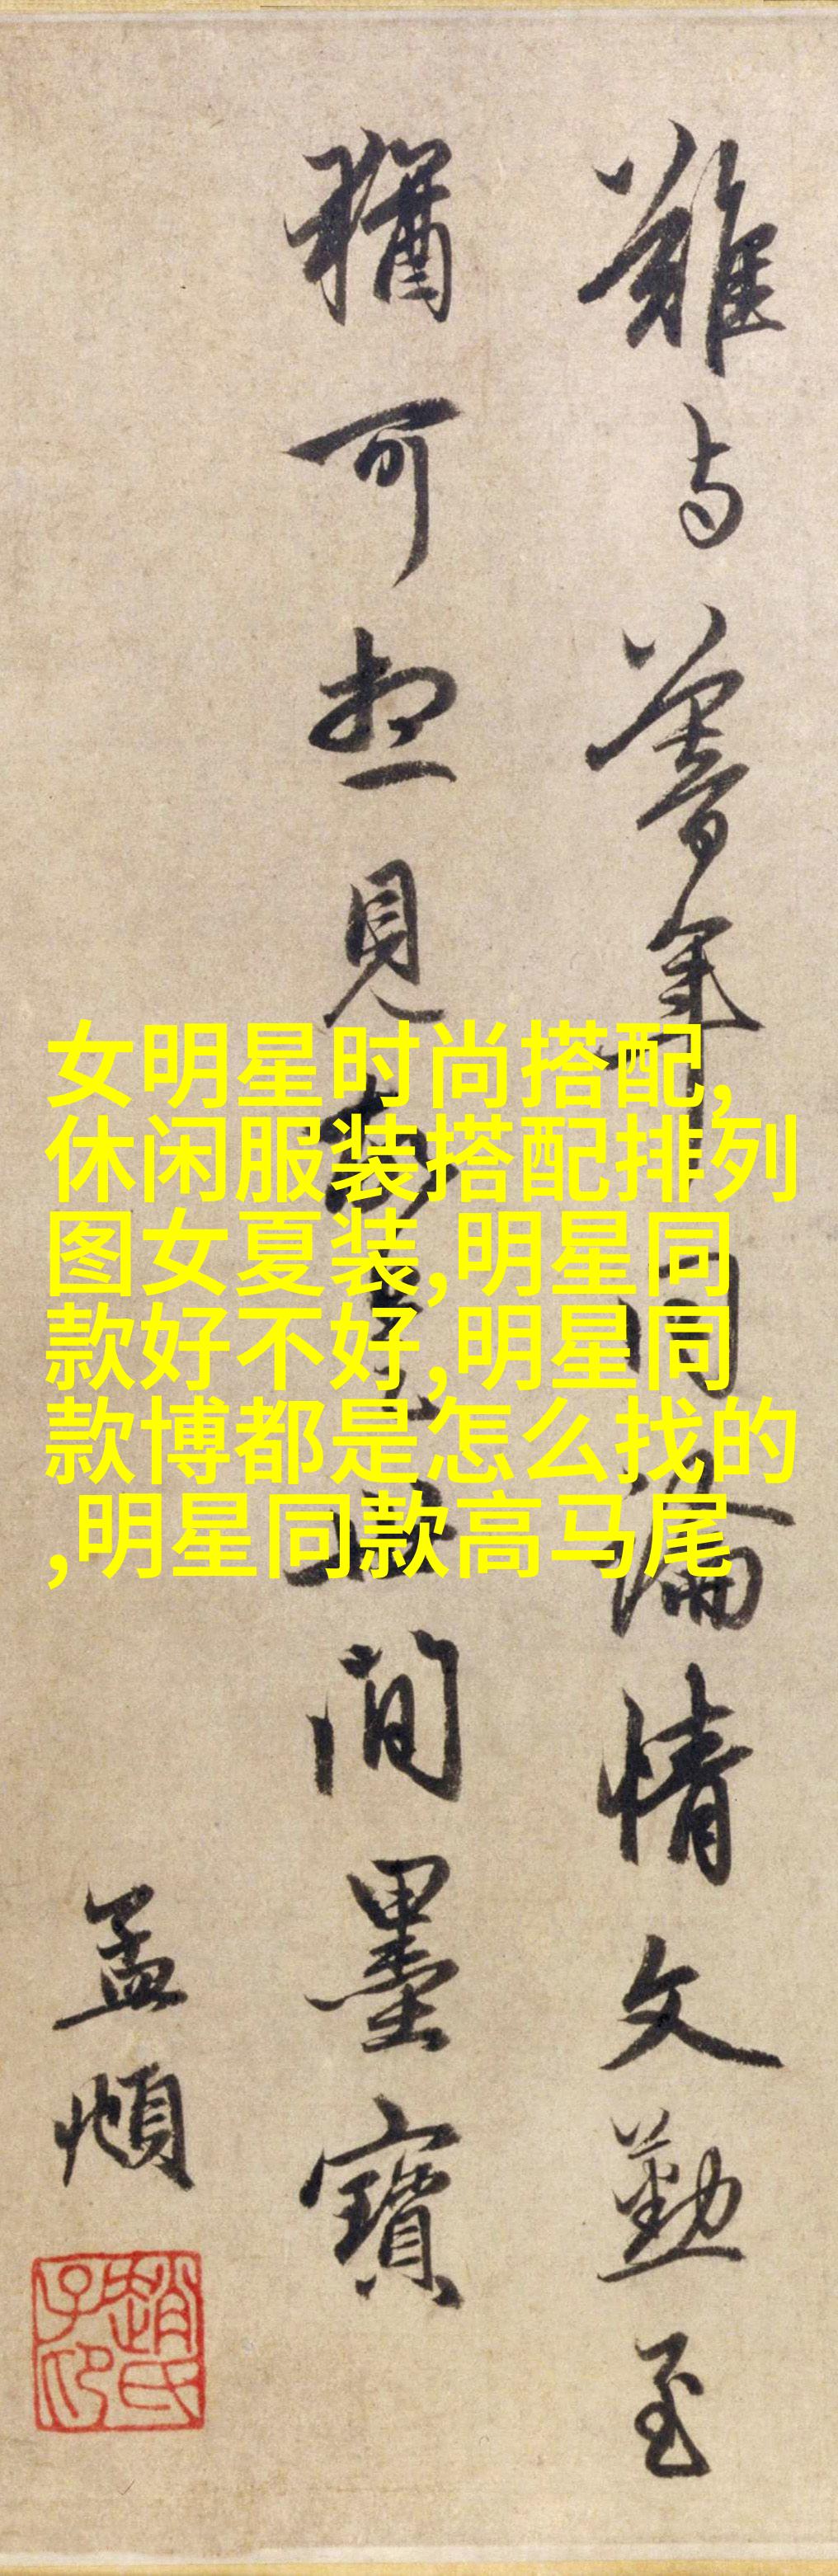 難与年同論情文勤至
猶可想見間墨寶
孟頫
趙氏子昂
女明星时尚搭配,
休闲服装搭配排列
图女夏装,明星同
款好不好,明星同
款博都是怎么找的
,明星同款高马尾